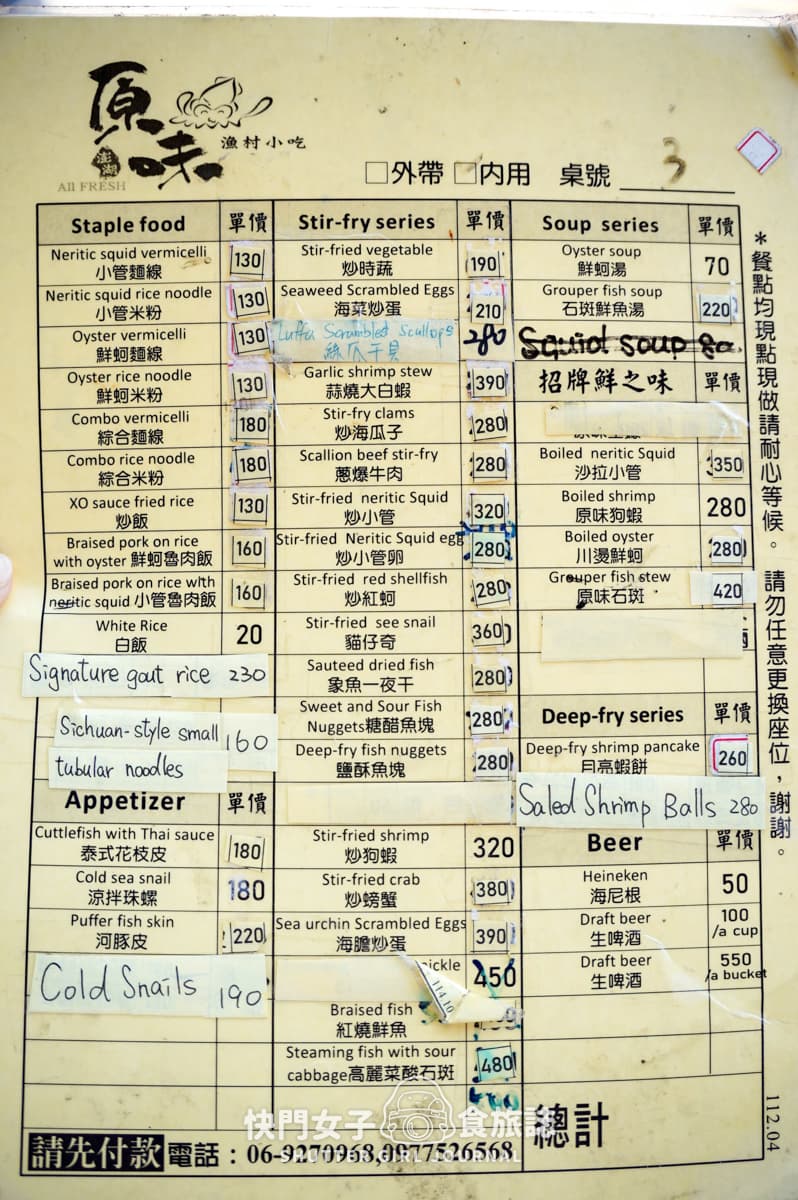 原味
澎湖
漁村小吃
All FRESH
□外帶 □内用 桌號 3
Staple food 單價
Neritic squid vermicelli
小管麵線 130
Neritic squid rice noodle
小管米粉 130
Oyster vermicelli
鮮蚵麵線 130
Oyster rice noodle
鮮蚵米粉 130
Combo vermicelli
綜合麵線 180
Combo rice noodle
綜合米粉 180
XO sauce fried rice
炒飯 130
Braised pork on rice
with oyster 鮮蚵魯肉飯 160
Braised pork on rice with
neritic squid 小管魯肉飯 160
White Rice
白飯 20
Signature gout rice 230
Sichuan-style small
tubular noodles 160
Appetizer 單價
Cuttlefish with Thai sauce
泰式花枝皮 180
Cold sea snail
涼拌珠螺 180
Puffer fish skin
河豚皮 220
Cold Snails 190
Stir-fry series 單價
Stir-fried vegetable
炒時蔬 190
Seaweed Scrambled Eggs
海菜炒蛋 210
Luffa Scrambled Scullops
絲瓜干貝 280
Garlic shrimp stew
蒜燒大白蝦 390
Stir-fry clams
炒海瓜子 280
Scallion beef stir-fry
蔥爆牛肉 280
Stir-fried neritic Squid
炒小管 320
Stir-fried Neritic Squid egg
炒小管卵 280
Stir-fried red shellfish
炒紅蚵 280
Stir-fried see snail
貓仔奇 360
Sauteed dried fish
象魚一夜干 280
Sweet and Sour Fish
Nuggets糖醋魚塊 280
Deep-fry fish nuggets
鹽酥魚塊 280
Stir-fried shrimp
炒狗蝦 320
Stir-fried crab
炒螃蟹 380
Sea urchin Scrambled Eggs
海膽炒蛋 390
ickle 450
114.10
Braised fish
紅燒鮮魚
Steaming fish with sour
cabbage高麗菜酸石斑 480
Soup series 單價
Oyster soup
鮮蚵湯 70
Grouper fish soup
石斑鮮魚湯 220
Squid soup 80
招牌鮮之味 單價
Boiled neritic Squid
沙拉小管 350
Boiled shrimp
原味狗蝦 280
Boiled oyster
川燙鮮蚵 280
Grouper fish stew
原味石斑 420
Deep-fry series 單價
Deep-fry shrimp pancake
月亮蝦餅 260
Saled Shrimp Balls 280
Beer 單價
Heineken
海尼根 50
Draft beer
生啤酒 100 /a cup
Draft beer
生啤酒 550 /a bucket
總計
*餐點均現點現做請耐心等候。請勿任意更換座位，謝謝。
112.04
請先付款 電話：06-9270968,0977526568
快門女子 食旅誌
SHUTTER GIRL JOURNAL